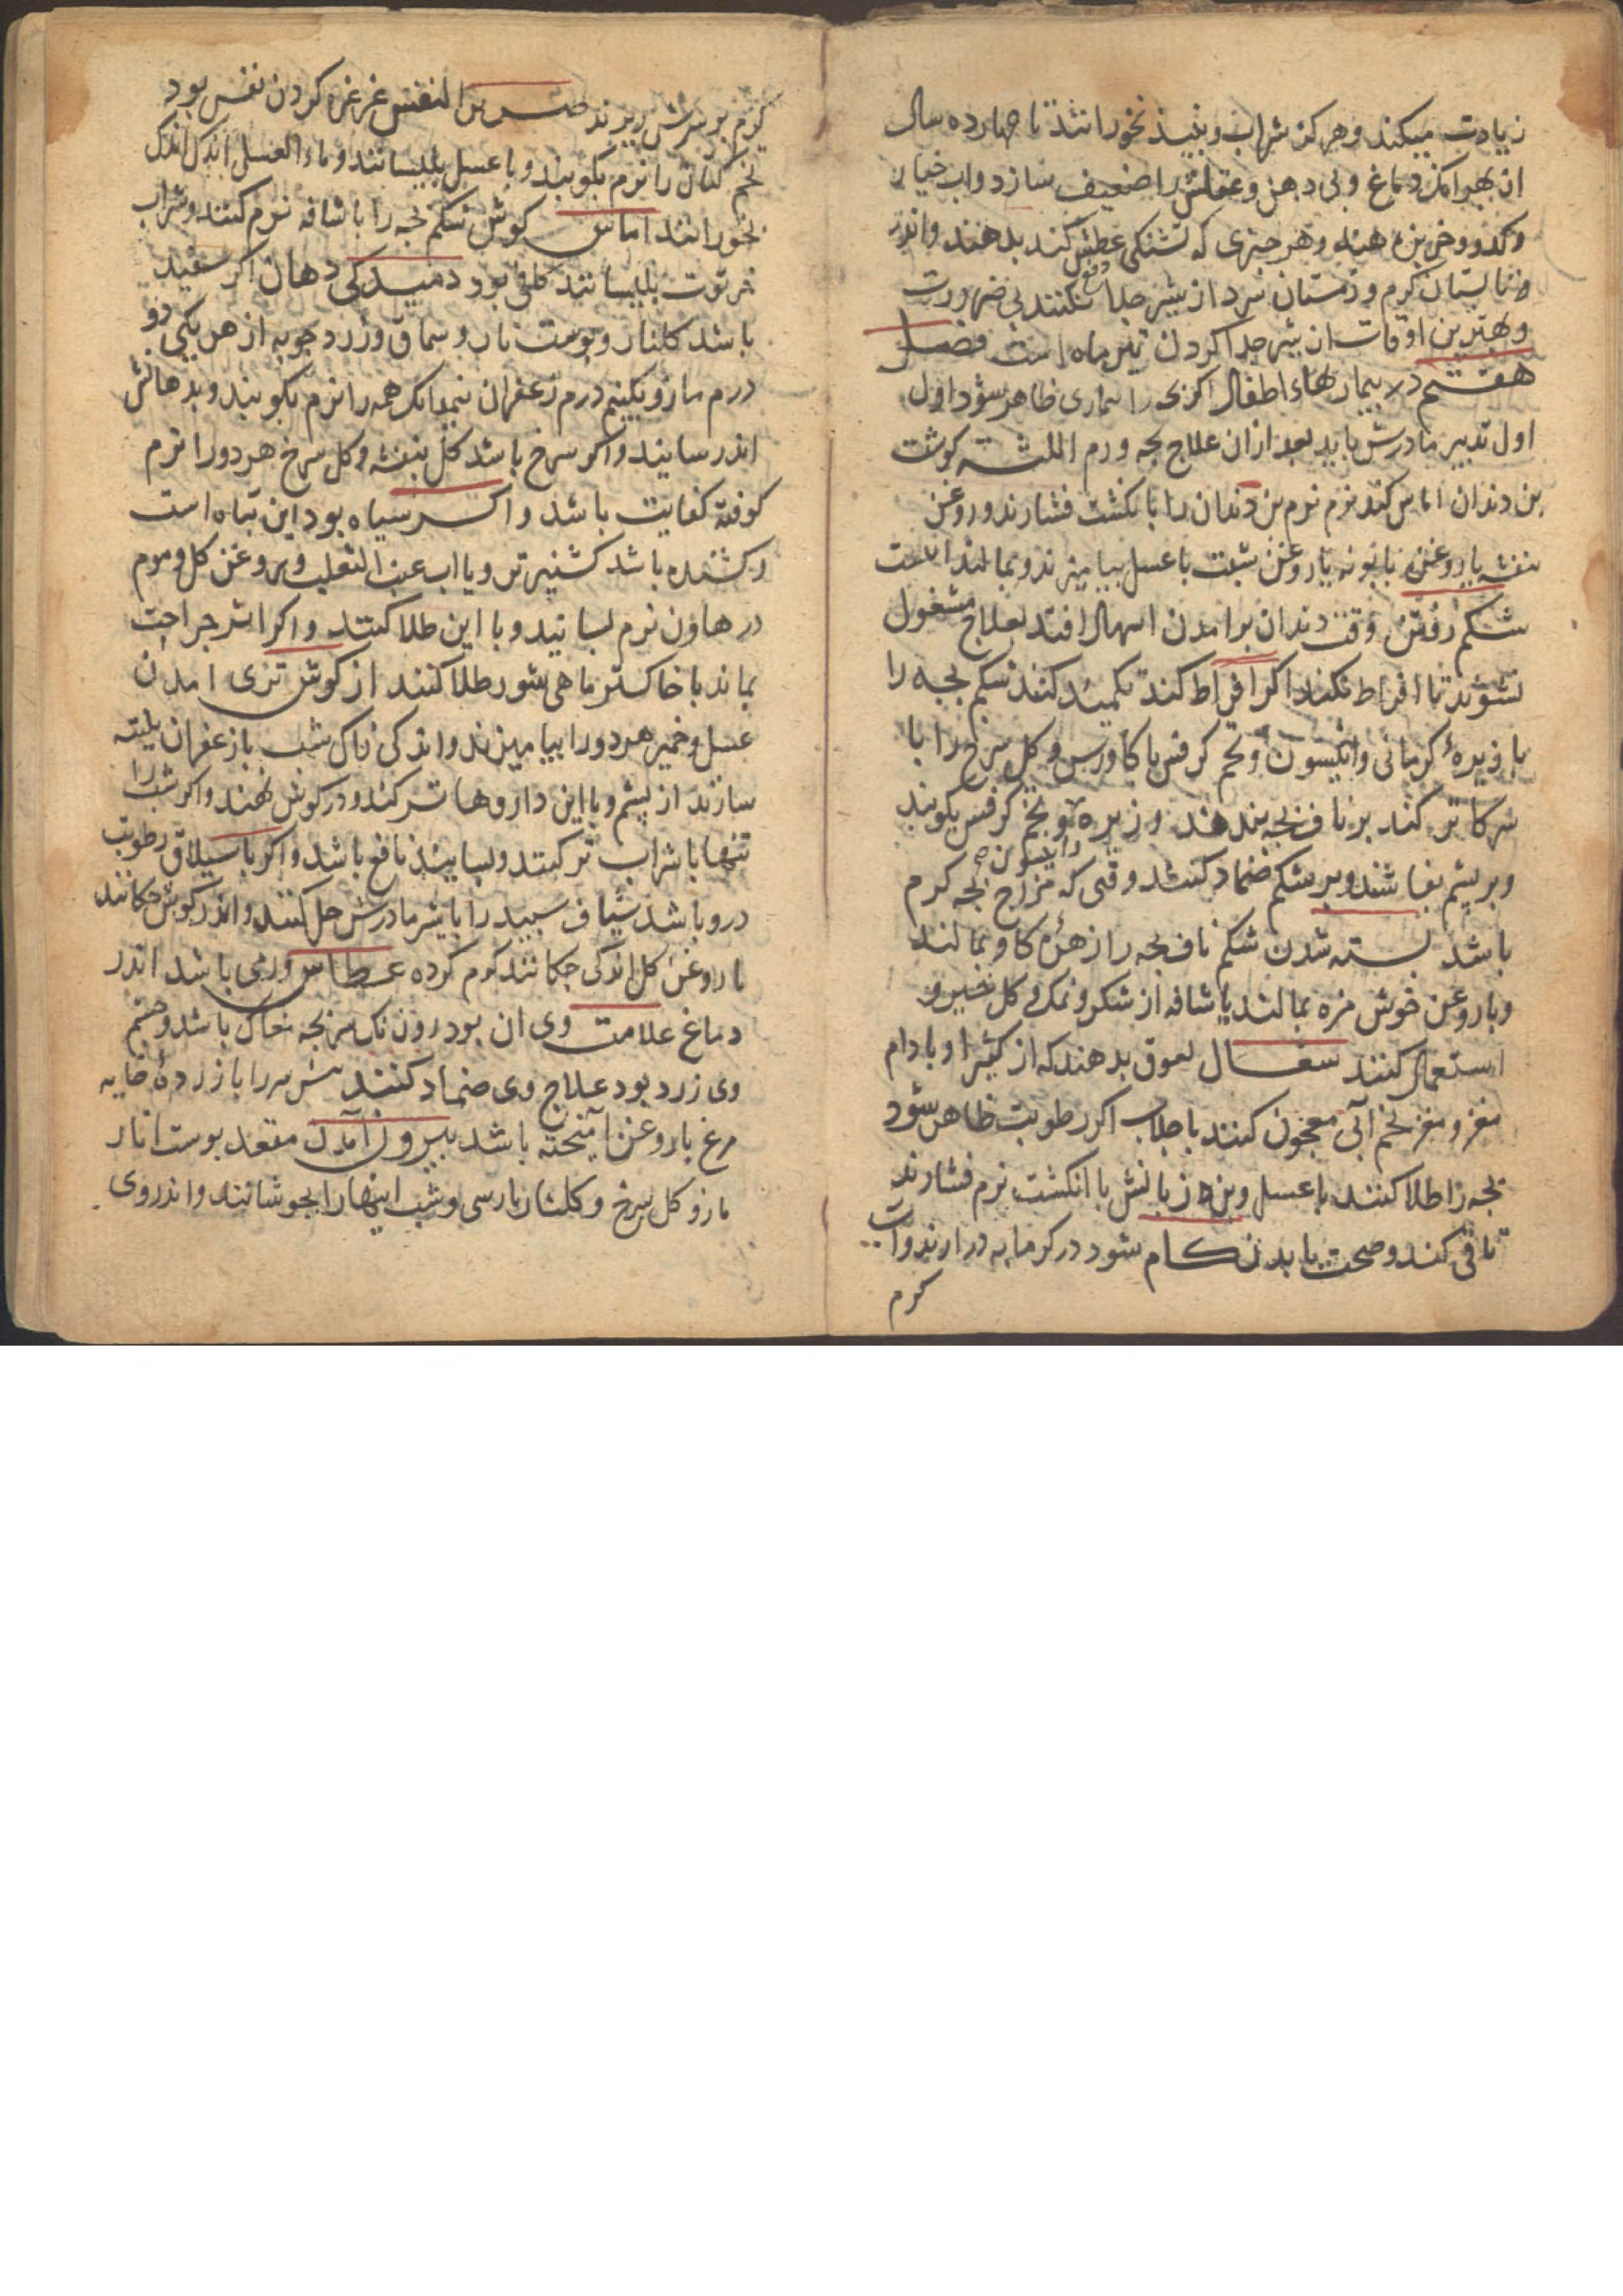 زیادت میکند و هرکز شراب و نبیذ نخورانند تا چهارده سال
ان بهر انک دماغ وی دهن و عقلش را ضعیف سازد و اب خیار
و کدو و خربزه دهند و هر چیزی که تشنکی عطش کند بدهند و اندر
تابستان کرم و زمستان سرد از شیر جدا نکنند بی ضرورت
و بهترین اوقات از شیر جدا کردن تیر ماه است فصل
هفتم در بیماریهاء اطفال اکر بچه را بیماری ظاهر شود اول
اول تدبیر مادرش باید بعد از ان علاج بچه ورم اللثه کوشت
بن دندان اماس کند نرم نرم بن دندان را بانکشت فشارند و روغن
بنفشه یا روغن بابونه یا روغن شبت با عسل بیامیزند و بمالند
شکم رفتن وقت دندان برامدن اسهال افتد بعلاج مشغول
نشوند تا افراط نکند اکر افراط کند تکمید کنند شکم بچه را
با زیره کرمانی و انیسون و تخم کرفس با کاورس و کل سرخ را با
سرکا تر کنند بر ناف بچه بندند و زیره و تخم کرفس بکوبند
و انیسون
و بر پشم بفاشند و بر شکم ضماد کنند وقتی که مزاج بچه کرم
باشد بسته شدن شکم ناف بچه را زهره کاو بمالند
و با روغن خوش مزه بمالند یا شافه از شکر و نمک و کل خیرو
استعمال کنند سعال لعوق بدهند که از کثیرا و بادام
مغز و مغز تخم آبی معجون کنند با جلاب اکر رطوبت ظاهر شود
بچه را طلا کنند با عسل و بن زبانش با انکشت نرم فشارند
تا قی کند و صحت یابد زکام شود در کرمابه درارند و اب
کرم
کرم بر سرش ریزند عسر النفس غرغره کردن نفس بود
تخم کتان را نرم بکوبند و با عسل بلیسانند و ماء العسل اندک اندک
بخورانند اماس کوش شکم بچه را با شافه نرم کنند و شراب
خرتوت بلیسانند کافی بود دمیدکی دهان اکر سفید
باشد کلنار و پوست نار و سماق و زرد چوبه از هر یکی دو
درم مازو یکنیم درم زعفران نیم دانک همه را نرم بکوبند و بدهانش
اندر سایند و اکر سرخ باشد کل بنفشه و کل سرخ هر دو را نرم
کوفته کفایت باشد و اکر سیاه بود این تباه است
و کشنده باشد کشنیز تر و یا اب عنب الثعلب و بروغن کل و موم
در هاون نرم بسایند و با این طلا کنند و اکر اثر جراحت
بماند با خاکستر ماهی شور طلا کنند از کوش تری امدن
عسل و خمیر هر دو را بیامیزند و اندکی زاک شب با زعفران پلیته
سازند از پشم و با این داروها تر کنند و در کوش نهند و اکر شب را
تنها با شراب تر کنند و بسایند نافع باشد و اکر با سیلان رطوبت
درو باشد شیاف سپید را با شیر مادرش حل کنند و اندر کوش چکانند
یا روغن کل اندکی چکانند کرم کرده عطاس ورمی باشد اندر
دماغ علامت وی ان بود رون تک سر بچه مغاک باشد و چشم
وی زرد بود علاج وی ضماد کنند پیش سر را با زرده خایه
مرغ با روغن آمیخته باشد بیرون آمدن مقعد پوست انار
مازو کل سرخ و کلنار پارسی و شب اینها را بجوشانند و اندر وی